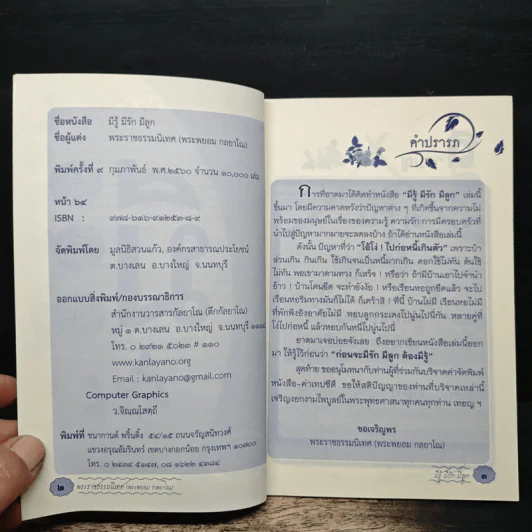 ชื่อหนังสือ มีรู้ มีรัก มีลูก
ชื่อผู้แต่ง พระราชธรรมนิเทศ (พระพยอม กลฺยาโณ)
พิมพ์ครั้งที่ ๙ กุมภาพันธ์ พ.ศ.๒๕๖๐ จำนวน ๑๐,๐๐๐ เล่ม
หน้า ๖๔
ISBN : ๙๗๘-๖๑๖-๙๑๒๕๓-๘-๙
จัดพิมพ์โดย มูลนิธิสวนแก้ว, องค์กรสาธารณประโยชน์
ต.บางเลน อ.บางใหญ่ จ.นนทบุรี
ออกแบบสิ่งพิมพ์/กองบรรณาธิการ
สำนักงานวารสารกัลยาโณ (ตึกกัลยาโณ)
หมู่ ๑ ต.บางเลน อ.บางใหญ่ จ.นนทบุรี
โทร. ๐ ๒๙๒๑ ๕๐๒๓ # ๑๑๐
www.kanlayano.org
Email : kanlayano@gmail.com
Computer Graphics
ว.จิณฺณโสตฺถี
พิมพ์ที่ ชนากานต์ พริ้นติ้ง ๕๔/๑๕ ถนนจรัญสนิทวงศ์
แขวงอรุณอัมรินทร์ เขตบางกอกน้อย กรุงเทพฯ ๑๐๗๐๐
โทร.
๒ พระราชธรรมนิเทศ (พระพยอม กลฺยาโณ)
คำปรารภ
การที่อาตมาได้คิดทำหนังสือ "มีรู้ มีรัก มีลูก" เล่มนี้
ขึ้นมา โดยมีความคาดหวังว่าปัญหาต่าง ๆ ที่เกิดขึ้นจากความไม่
พร้อมของมนุษย์ในเรื่องของความรู้ ความรัก การมีครอบครัวที่
นำไปสู่ปัญหามากมายจะลดลงบ้าง ถ้าได้อ่านหนังสือเล่มนี้
ดังนั้น ปัญหาที่ว่า "ใช้โง่ ! ไปก่อหนี้เกินตัว" เพราะบ้า
ส่วนเกิน กินเกิน ใช้เกินจนเป็นหนี้มากเกิน ดอกใช้ไม่ทัน ต้นใช้
ไม่ทัน พอเขามาตามทวง ก็เสร็จ ! หรือว่า ถ้ามีบ้านเอาไปจำนำ
อ้าว ! บ้านโดนยึด จะทำยังงัย ! หรือเรือนหอถูกยึดแล้ว จะไป
เรือนหอริมทางมันก็ไม่ได้ ก็เคร้าสิ ! ทีนี้ บ้านไม่มี เรือนหอไม่มี
ที่พักพิงอิงอาศัยไม่มี หอบลูกกระเตงไปนู่นไปนี่กัน หลายคู่ที่
โง่ไปก่อหนี้ แล้วหอบกันหนีไปนู่นไปนี่
อาตมาเจอบ่อยจังเลย ถึงอยากเขียนหนังสือเล่มนี้ออก
มา ให้รู้ไว้ก่อนว่า "ก่อนจะมีรัก มีลูก ต้องมีรู้"
สุดท้าย ขออนุโมทนากับท่านผู้ที่ร่วมกันบริจาคค่าจัดพิมพ์
หนังสือ-ค่าเทปซีดี ขอให้สติปัญญาของท่านที่บริจาคเหล่านี้
เจริญงอกงามไพบูลย์ในพระพุทธศาสนาทุกคนทุกท่าน เทอญ ฯ
ขอเจริญพร
พระราชธรรมนิเทศ (พระพยอม กลฺยาโณ)
มีรู้ มีรัก มีลูก ๓